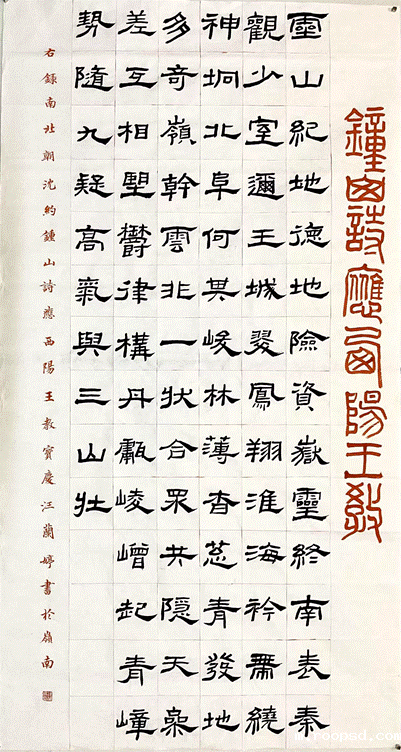 鐘山詩應西陽王教
靈山紀地德地險資嶽靈終南表秦
觀少室邇王城翠鳳翔淮海衿帶繞
神坰北阜何其峻林薄杳葱青發地
多奇嶺幹雲非一狀合眾共隱天參
差互相望鬱律構丹巘崚嶒起青嶂
勢隨九疑高氣與三山壯
右錄南北朝沈約鍾山詩應西陽王教寶慶江蘭婷書於嶺南